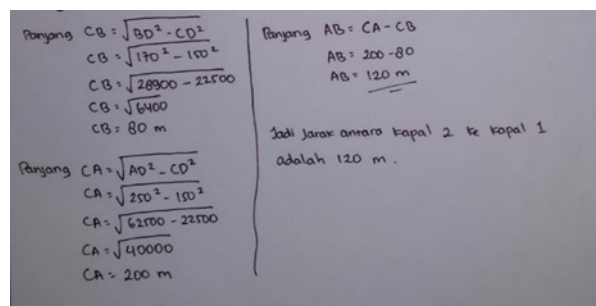 Panjang CB = √BD² - CD²
CB = √170² - 150²
CB = √28900 - 22500
CB = √6400
CB = 80 m
Panjang CA = √AD² - CD²
CA = √250² - 150²
CA = √62500 - 22500
CA = √40000
CA = 200 m
Panjang AB = CA - CB
AB = 200 - 80
AB = 120 m
Jadi Jarak antara kapal 2 ke kapal 1
adalah 120 m.